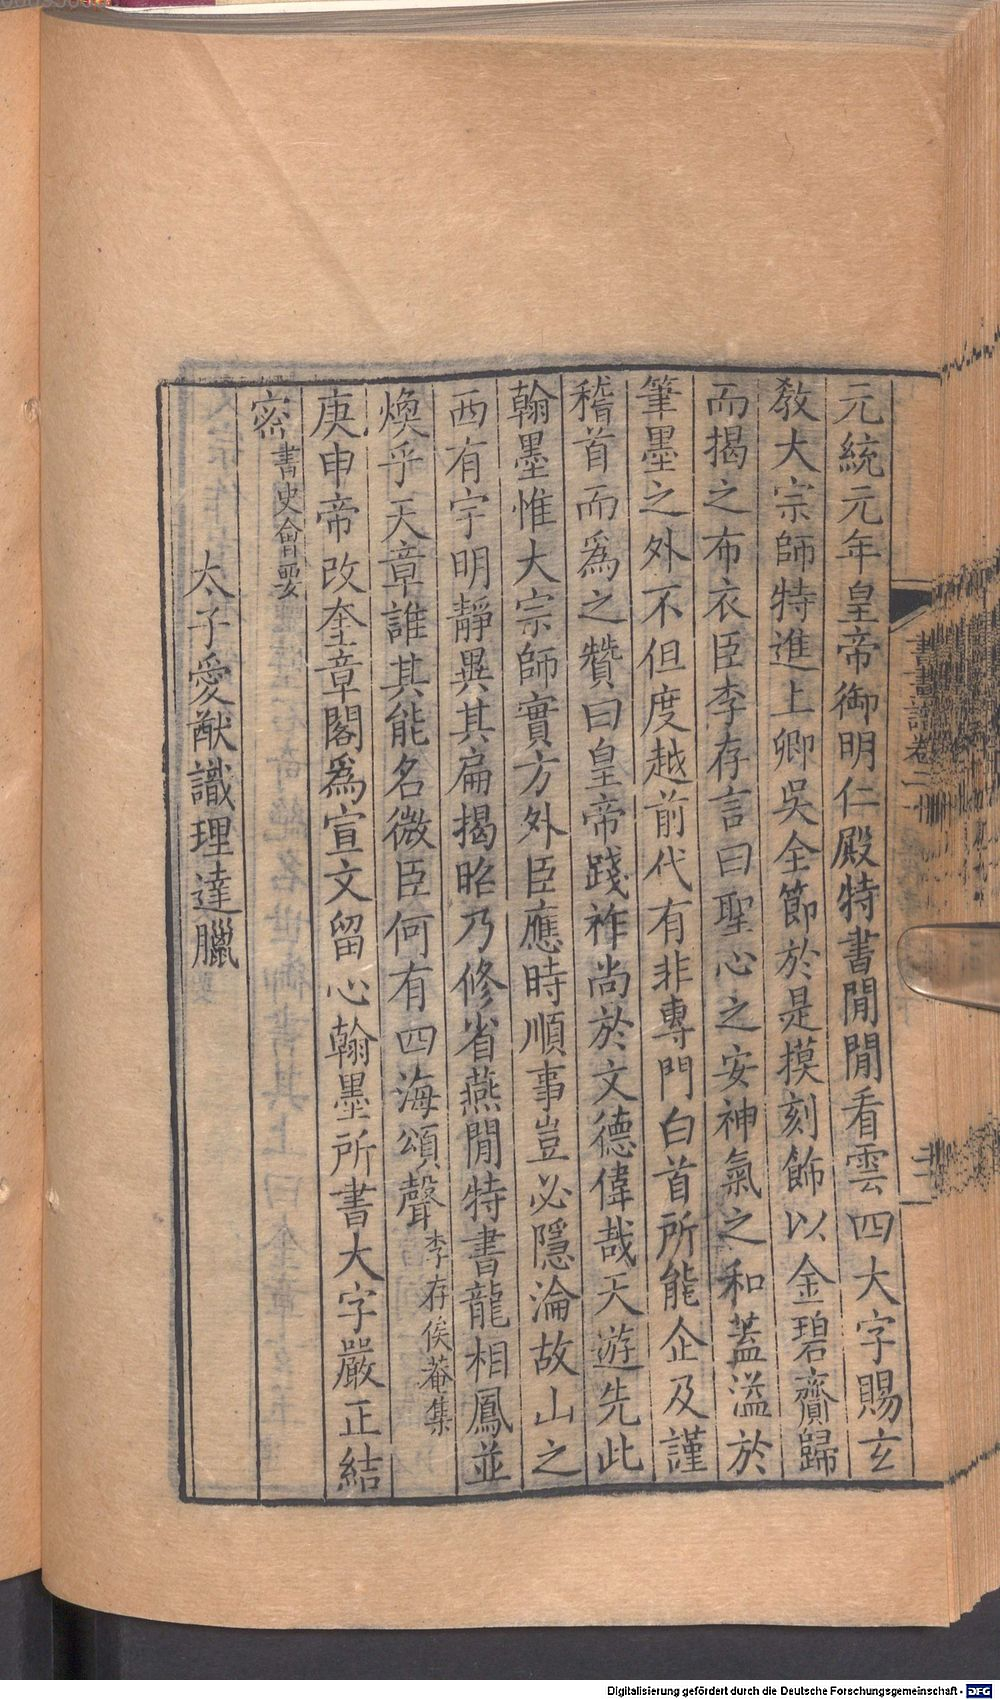 元統元年皇帝御明仁殿特書閒閒看雲四大字賜玄
敎大宗師特進上卿吳全節於是摸刻飾以金碧齎歸
而揭之布衣臣李存言曰聖心之安神氣之和葢溢於
筆墨之外不但度越前代有非專門白首所能企及謹
稽首而爲之贊曰皇帝踐祚尚於文德偉哉天遊先此
翰墨惟大宗師實方外臣應時順事豈必隱淪故山之
西有宇明靜異其扁揭昭乃修省燕閒特書龍相鳳並
煥乎天章誰其能名微臣何有四海頌聲李存俟菴集
庚申帝改奎章閣爲宣文留心翰墨所書大字嚴正結
密書史會要
太子愛猷識理達臘
書畫譜卷二十
Digitalisierung gefördert durch die Deutsche Forschungsgemeinschaft - DFG